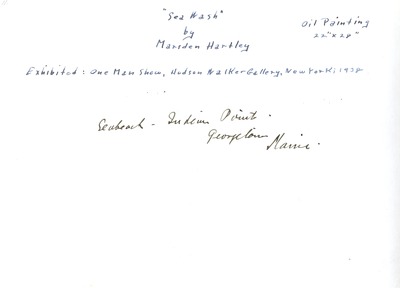 "Sea Wash"
by
Marsden Hartley
Oil Painting
22"x28"
Exhibited: One Man Show, Hudson Walker Gallery, New York, 1938
Seabeach - Indian Point.
Georgetown
Maine.